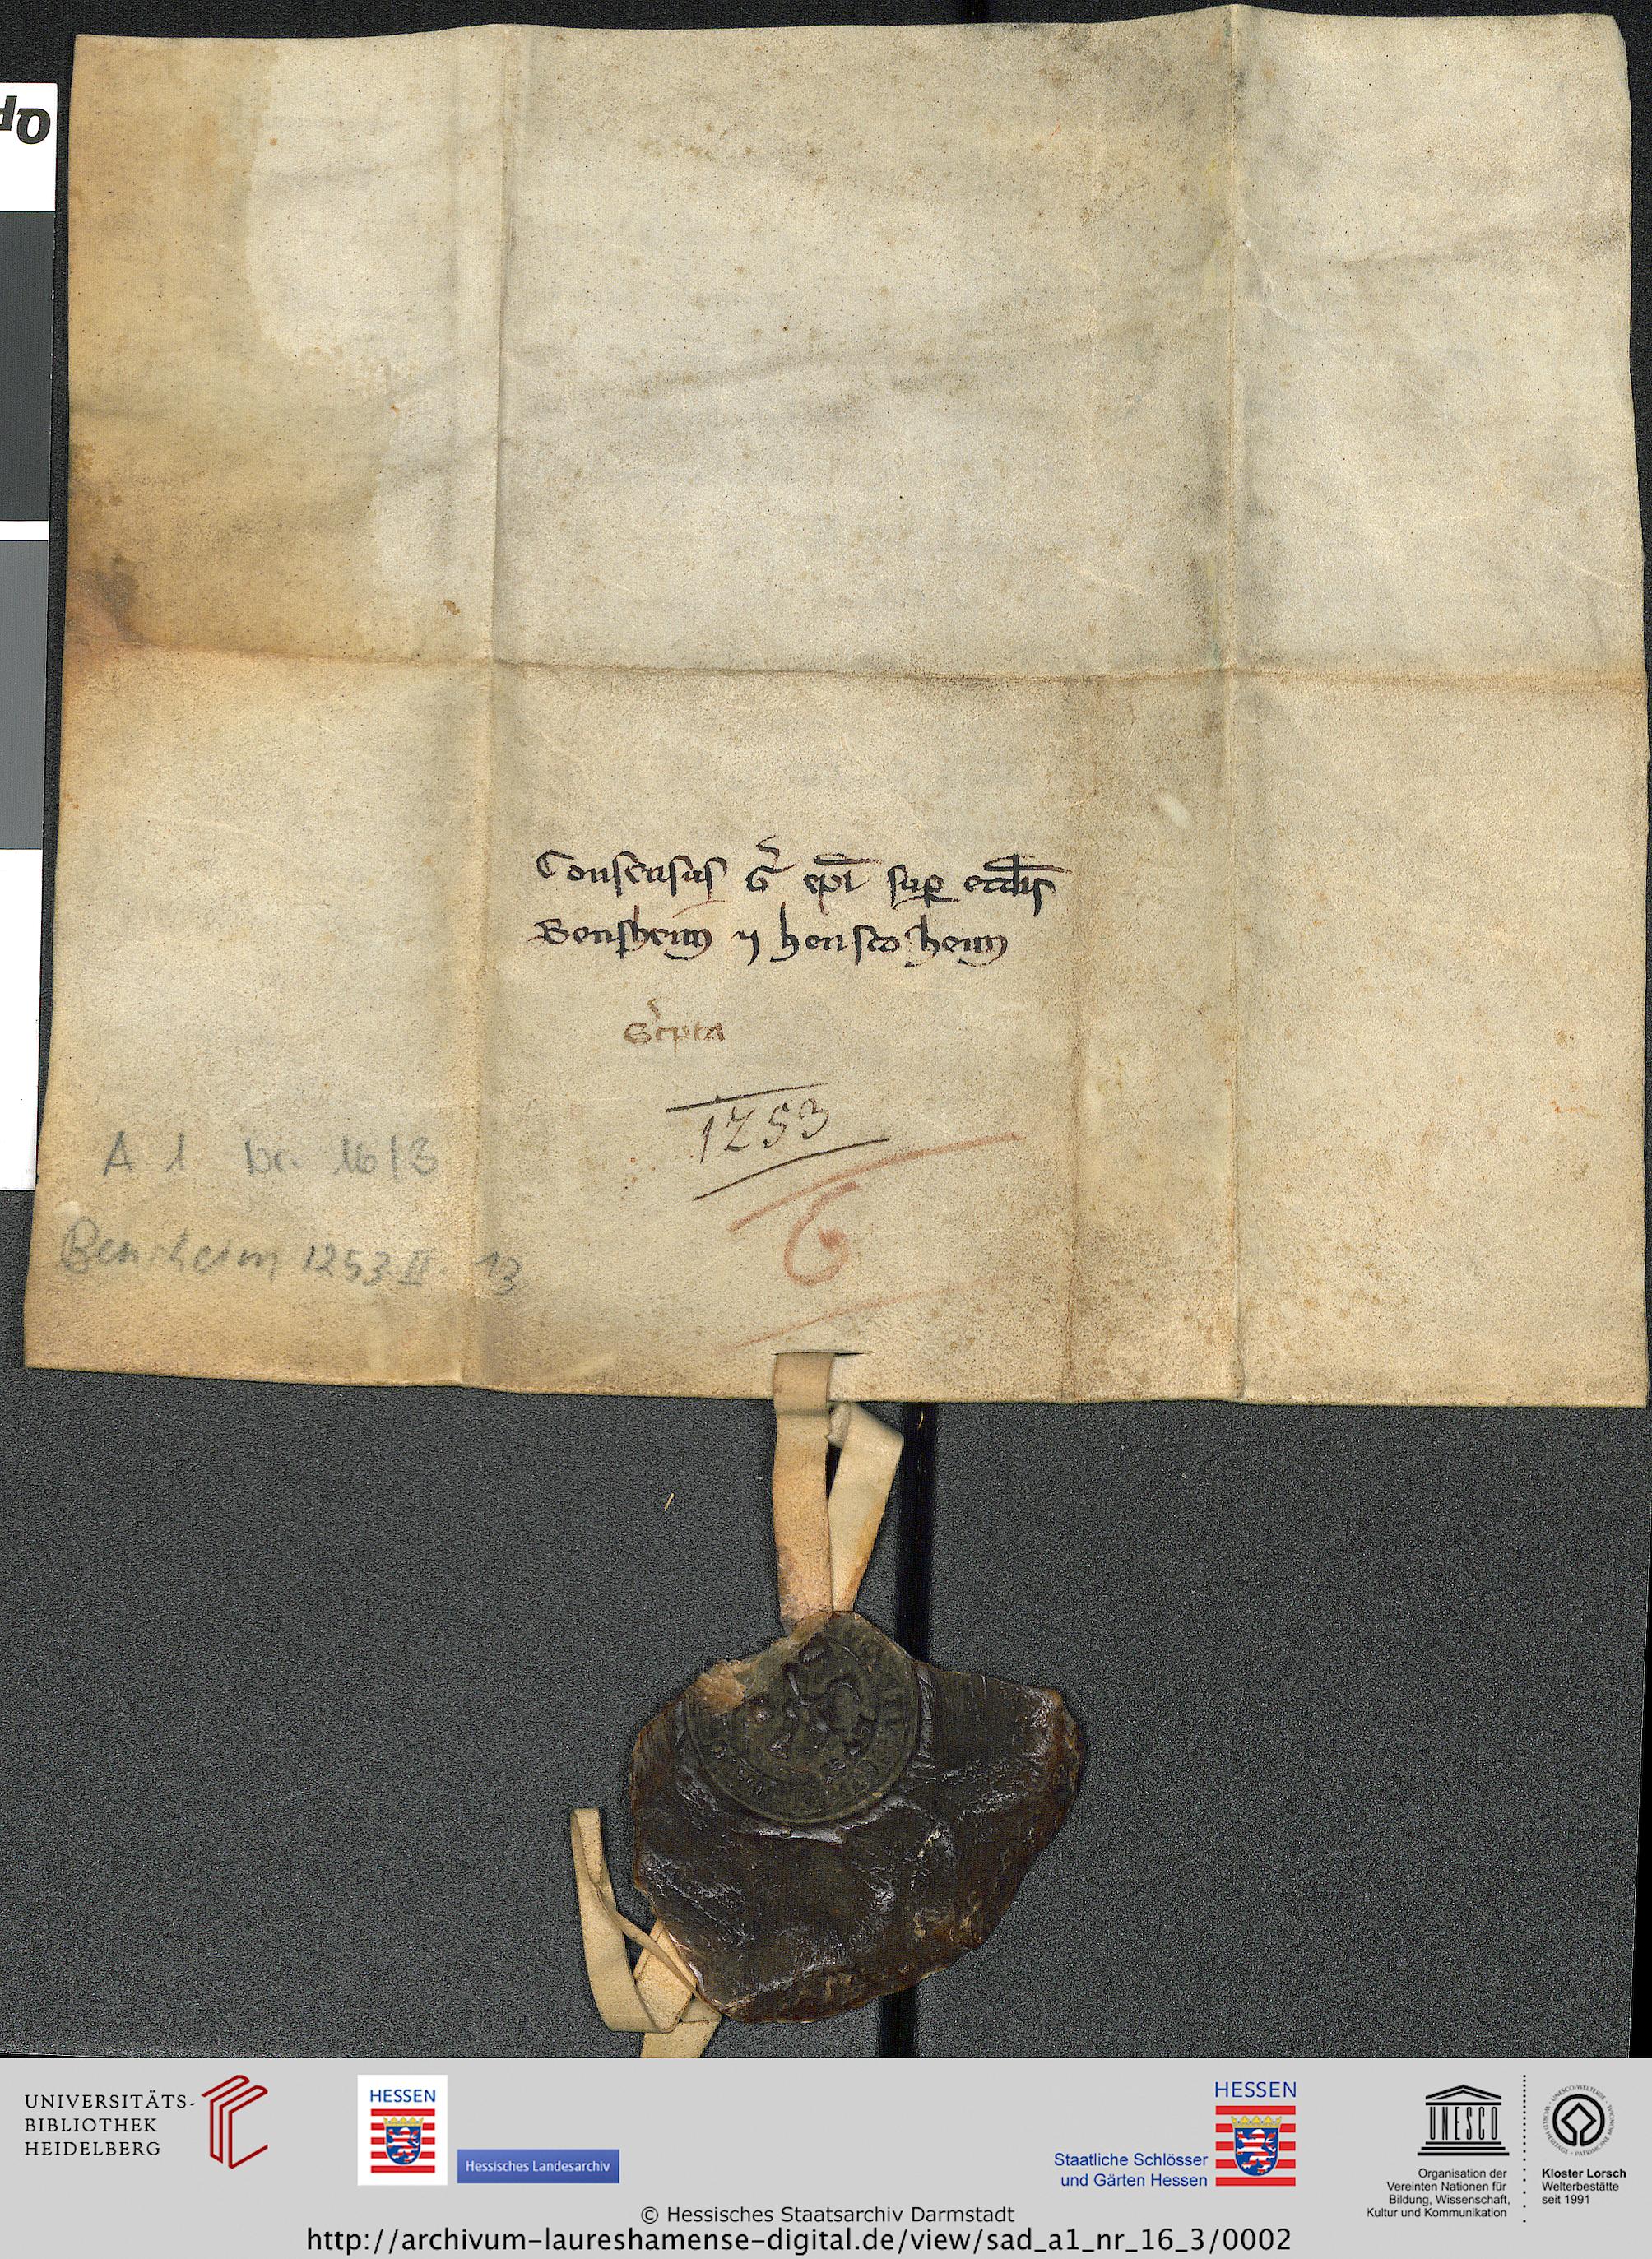 Consensus G epi sup ecclis
Bensheim ⁊ hensco heim
Scpta
1253
6
A 1 Nr. 16/3
Bensheim 1253 II. 13
UNIVERSITÄTS-
BIBLIOTHEK
HEIDELBERG
HESSEN
Hessisches Landesarchiv
HESSEN
Staatliche Schlösser
und Gärten Hessen
UNESCO
Organisation der
Vereinten Nationen für
Bildung, Wissenschaft,
Kultur und Kommunikation
Kloster Lorsch
Welterbestätte
seit 1991
© Hessisches Staatsarchiv Darmstadt
http://archivum-laureshamense-digital.de/view/sad_a1_nr_16_3/0002